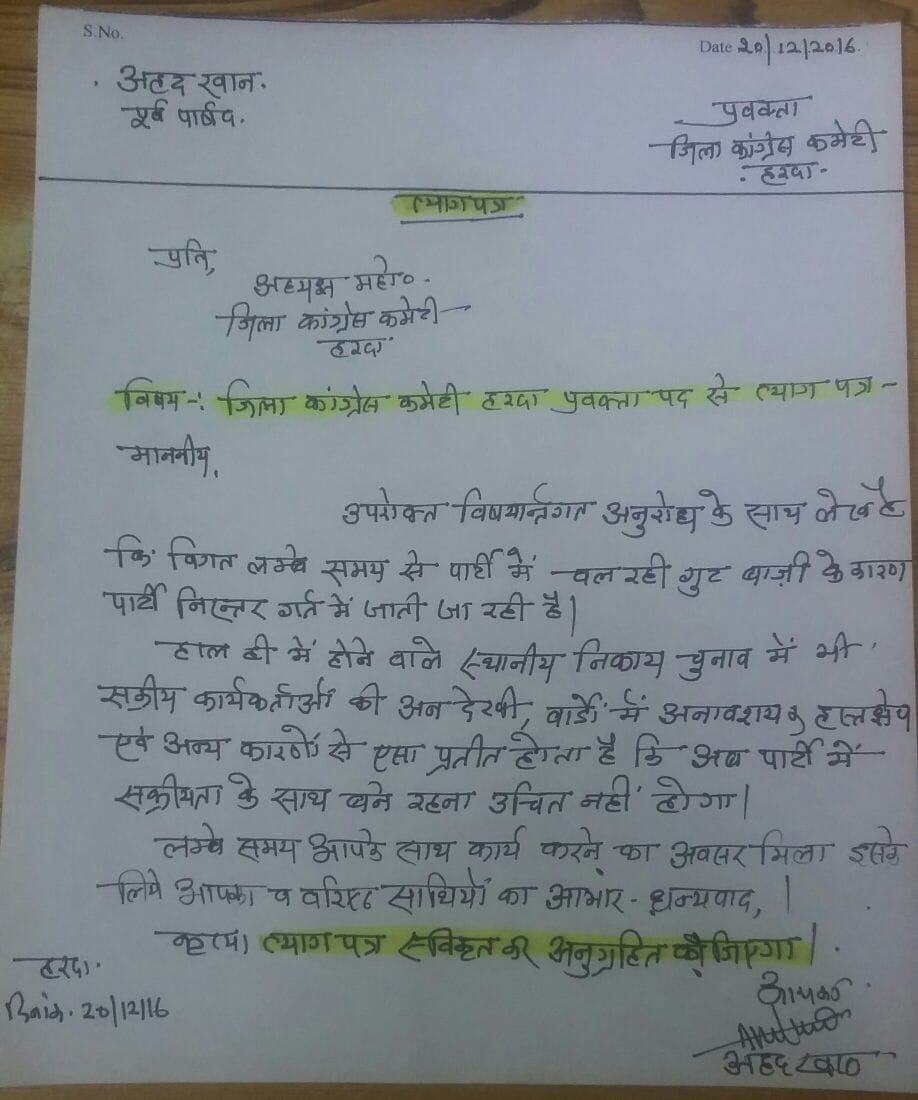 S.No.
Date 20/12/2016.
अहद खान.
पूर्व पार्षद.
प्रवक्ता
जिला कांग्रेस कमेटी
हरदा.
त्यागपत्र
प्रति,
अध्यक्ष महो०.
जिला कांग्रेस कमेटी
हरदा
विषय-: जिला कांग्रेस कमेटी हरदा प्रवक्ता पद से त्याग पत्र-
माननीय,
उपरोक्त विषयार्न्तगत अनुरोध के साथ लेख है
कि विगत लम्बे समय से पार्टी में चल रही गुट बाज़ी के कारण
पार्टी निरन्तर गर्त में जाती जा रही है|
हाल ही में होने वाले स्थानीय निकाय चुनाव में भी
सक्रीय कार्यकर्ताओं की अन देखी, वार्डो में अनावशयक हस्तक्षेप
एवं अन्य कारणों से एसा प्रतीत होता है कि अब पार्टी में
सक्रीयता के साथ बने रहना उचित नहीं होगा|
लम्बे समय आपके साथ कार्य करने का अवसर मिला इसके
लिये आपका व वरिष्ठ साथियों का आभार - धन्यवाद, |
कृप्या त्यागपत्र स्विकृत कर अनुग्रहित कीजिएगा|.
हरदा.
दिनांक. 20/12/16
आपका
अहद खान